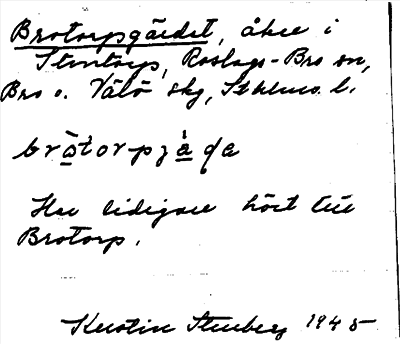 Brotorpgärdet, åker i
Stentorp, Roslags-Bro sn,
Bro o. Vätö skg, Sthlms l.
Har tidigare hört till
Brotorp.
Kerstin Stenberg 1945